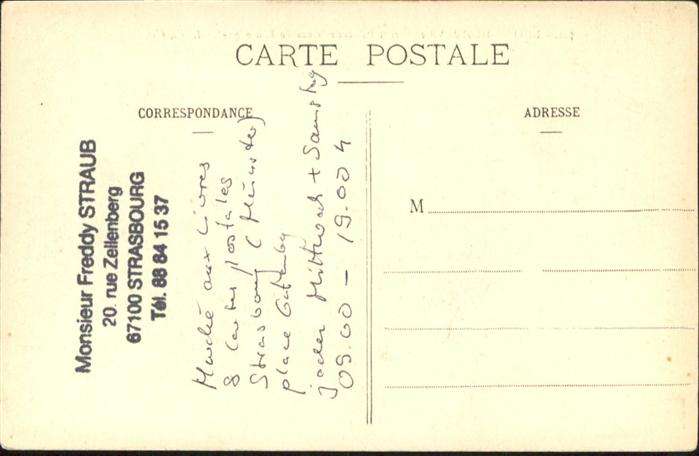 CARTE POSTALE
CORRESPONDANCE
ADRESSE
M
Monsieur Freddy STRAUB
20. rue Zellenberg
67100 STRASBOURG
Tél. 88 84 15 37
Marché aux Livres
& Cartes postales
Strasbourg (Münster)
place Gutenbg
jeden Mittwoch + Samstag
09.00 - 19.00 h